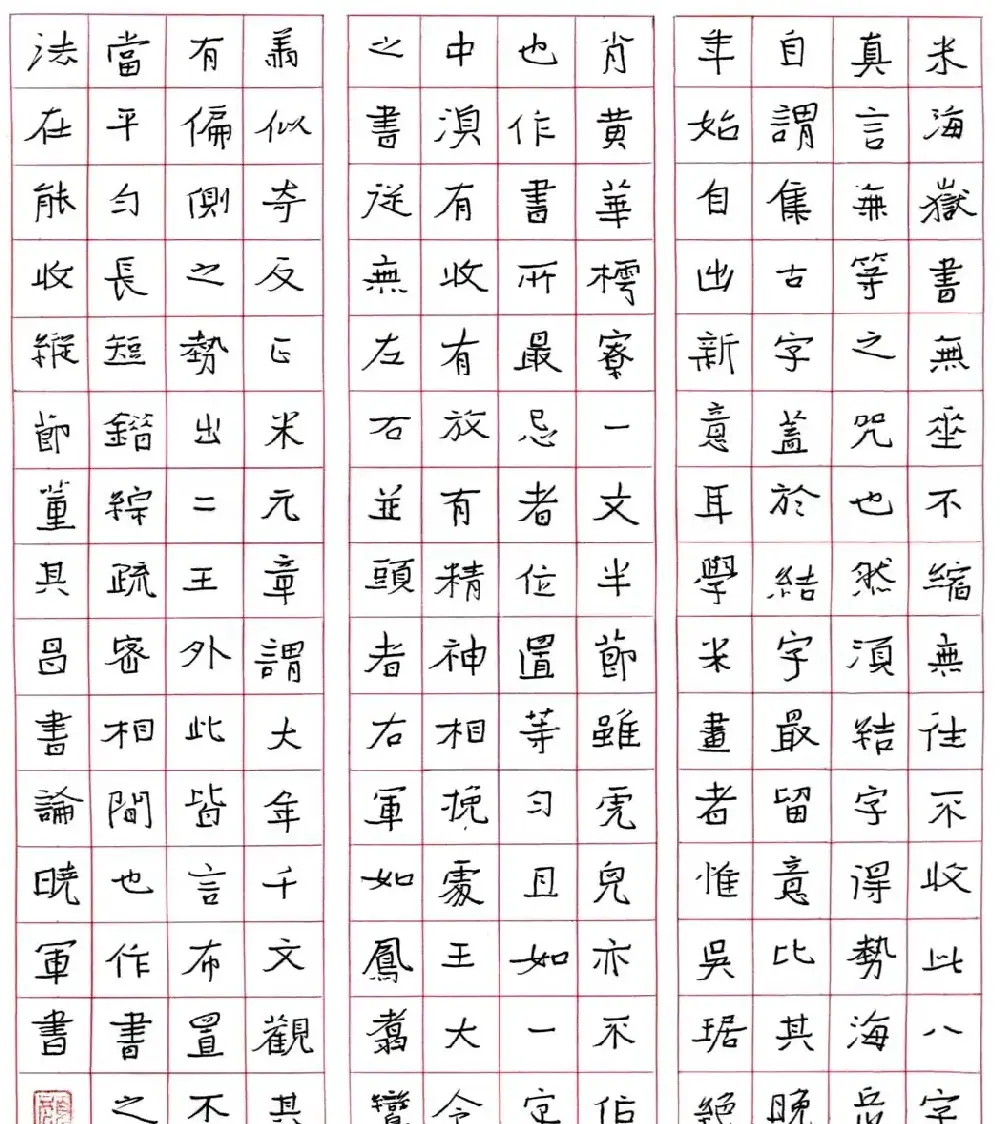 米海嶽書無垂不縮無往不收此八字
真言無等之咒也然須結字得勢海岳
自謂集古字蓋於結字最留意比其晚
年始自出新意耳學米畫者惟吳琚絕
肖黃華樗寮一文半節雖虎兒亦不佀
也作書所最忌者位置等勻且如一字
中須有收有放有精神相挽處王大令
之書從無左右並頭者右軍如鳳翥鸞
翔似奇反正米元章謂大年千文觀其
有偏側之勢出二王外此皆言布置不
當平勻長短錯綜疏密相間也作書之
法在能收縱節董其昌書論曉軍書